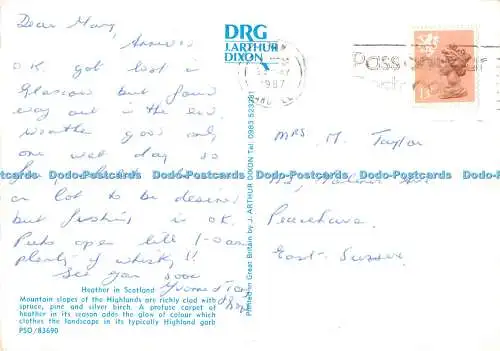 Dear Mary,
Arrived
O.K. got lost in
Glasgow but found
way out in the end
weather good only
one wet day so
a lot to be desired
but fishing is O.K.
Pubs open till 1-0am
plenty of whisky!!
See you soon
Heather in Scotland
Mountain slopes of the Highlands are richly clad with
spruce, pine and silver birch. A profuse carpet of
heather in its season adds the glow of colour which
clothes the landscape in its typically Highland garb
PSO/83690
DRG
J.ARTHUR
DIXON
Printed in Great Britain by J. ARTHUR DIXON Tel. 0983 523381
1987
Mrs M. Taylor
Peacehaven
East Sussex
Dodo-Postcards Dodo-Postcards Dodo-Postcards Dodo-Postcards Dodo-Postcards Dodo-Postcards